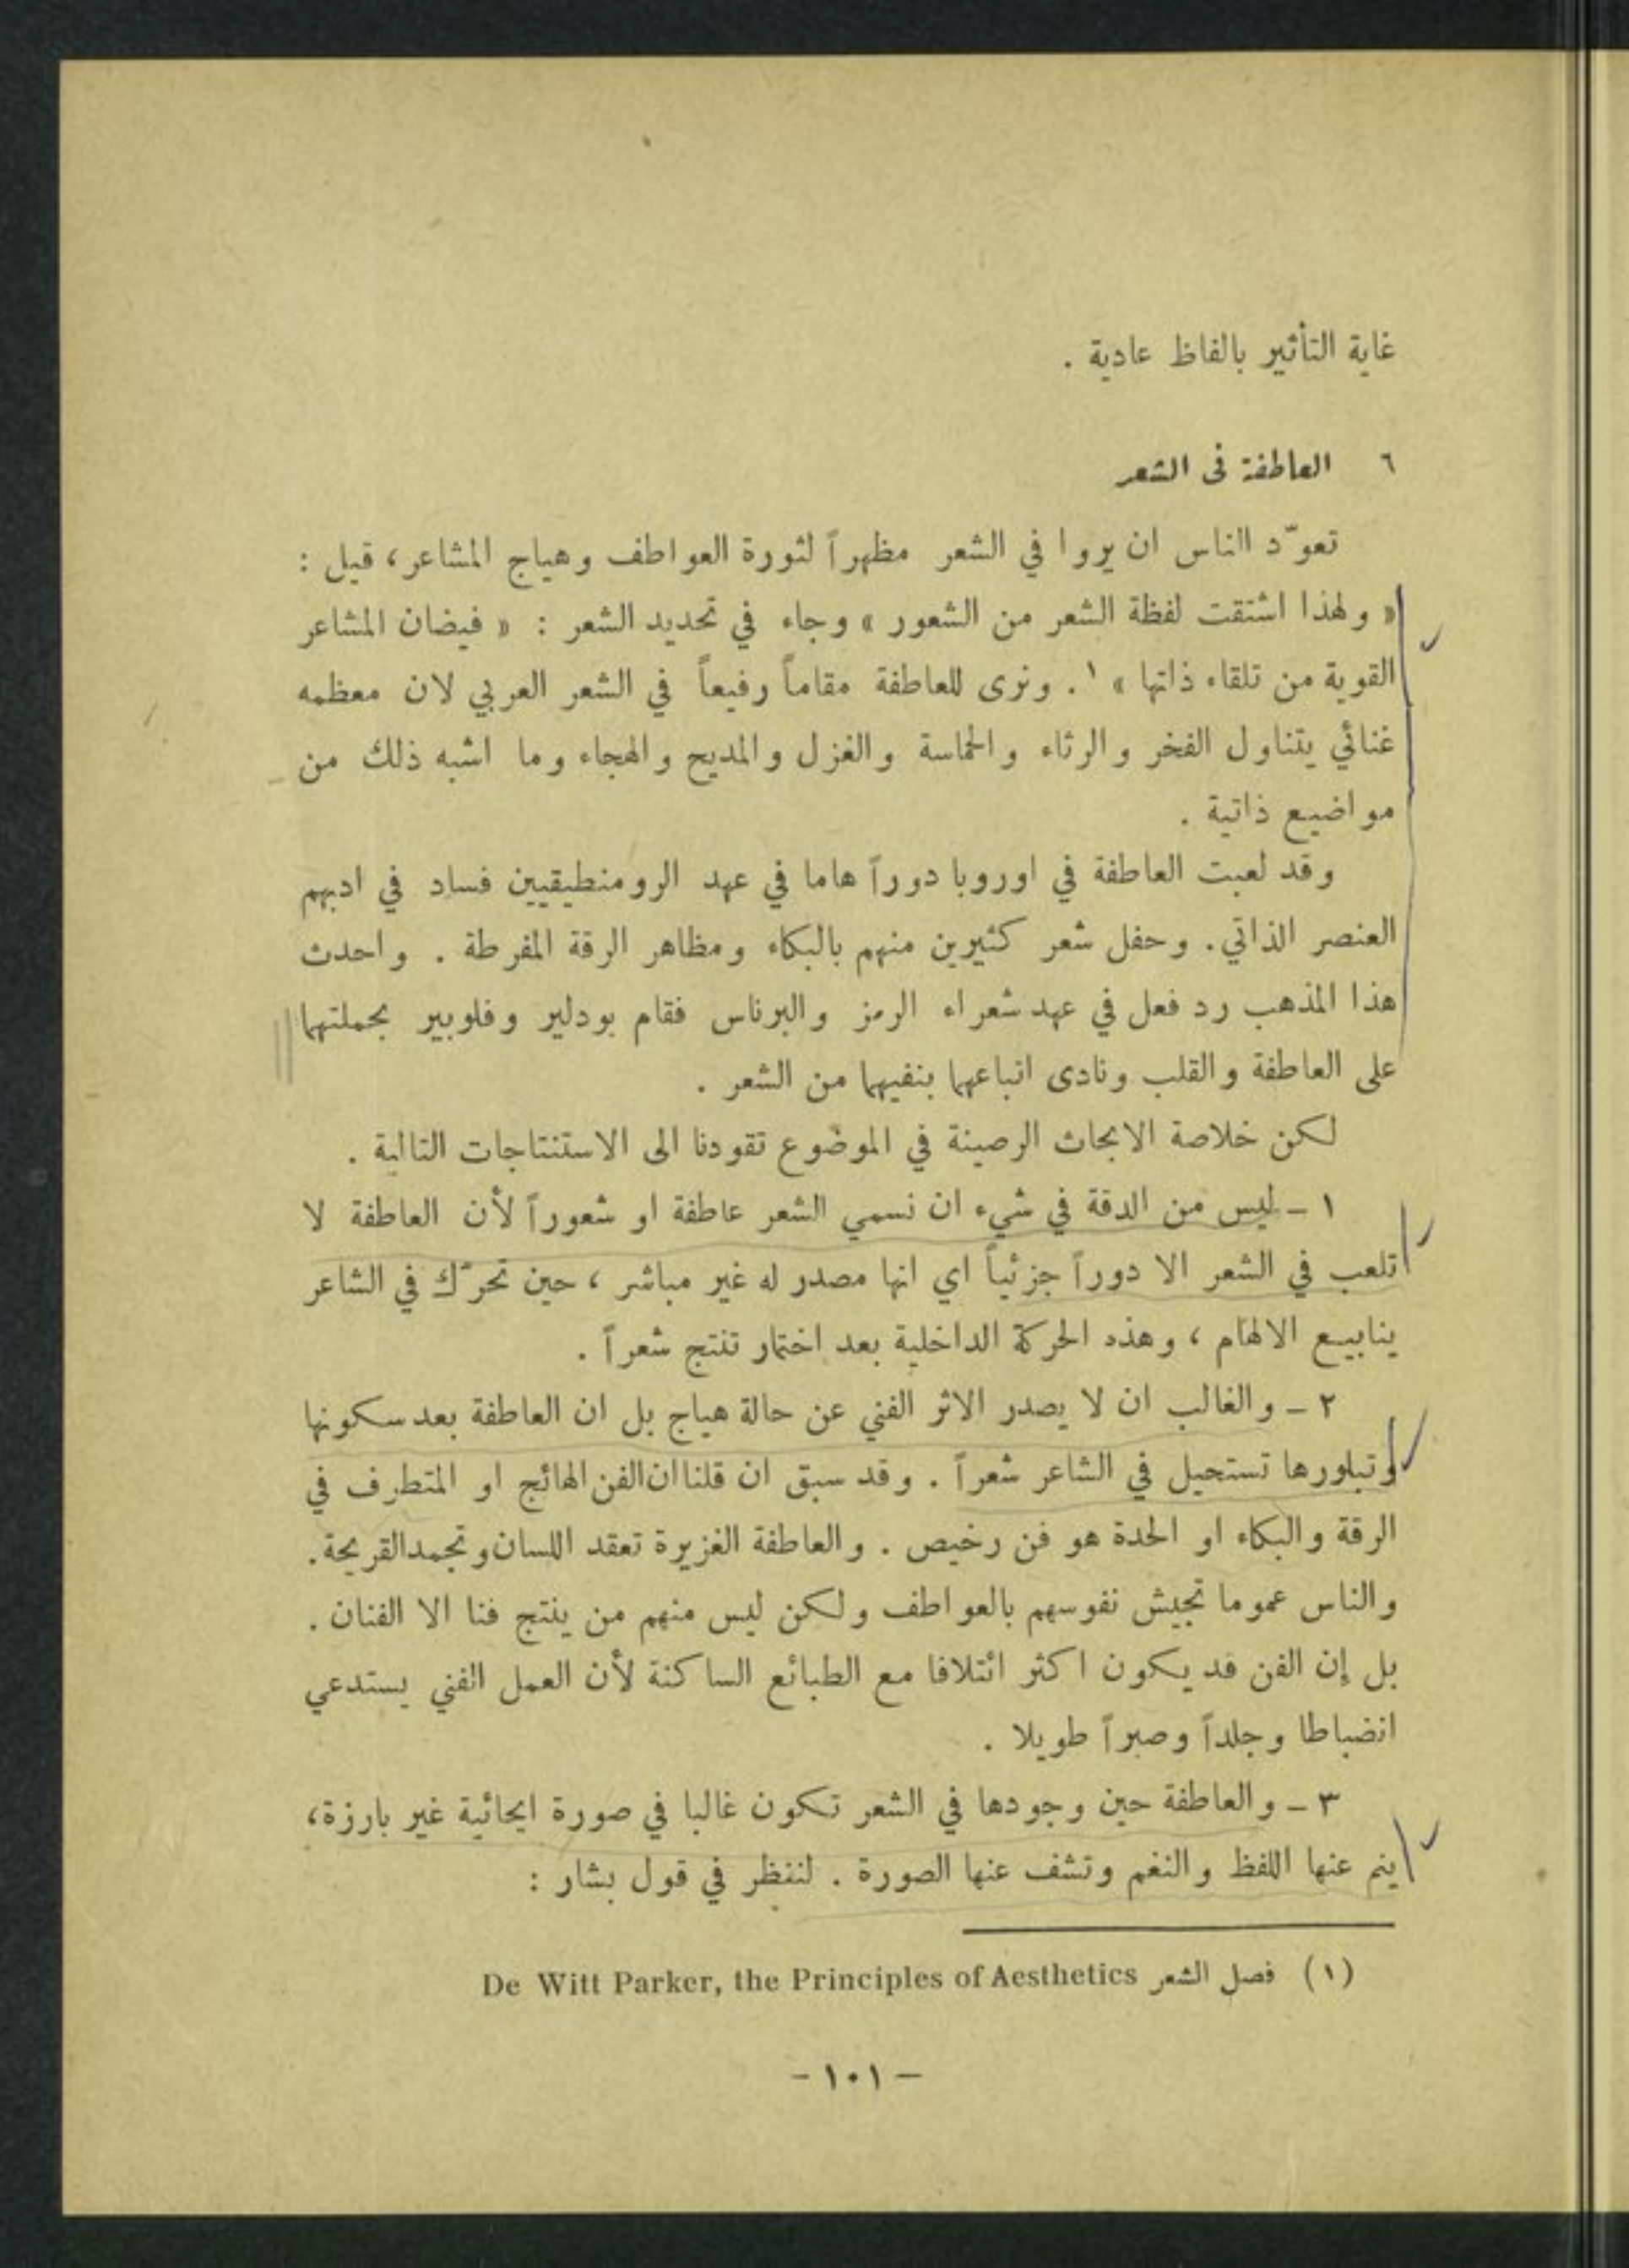 غاية التأثير بالفاظ عادية .
٦ العاطفة في الشعر
تعوّد الناس ان يروا في الشعر مظهراً لثورة العواطف وهياج المشاعر، قيل :
« ولهذا اشتقت لفظة الشعر من الشعور » وجاء في تحديد الشعر : « فيضان المشاعر
القوية من تلقاء ذاتها » ١ . ونرى للعاطفة مقاماً رفيعاً في الشعر العربي لان معظمه
غنائي يتناول الفخر والرثاء والحماسة والغزل والمديح والهجاء وما اشبه ذلك من
مواضيع ذاتية .
وقد لعبت العاطفة في اوروبا دوراً هاما في عهد الرومنطيقيين فساد في ادبهم
العنصر الذاتي. وحفل شعر كثيرين منهم بالبكاء ومظاهر الرقة المفرطة . واحدث
هذا المذهب رد فعل في عهد شعراء الرمز والبرناس فقام بودلير وفلوبير بحملتهما
على العاطفة والقلب ونادى اتباعهما بنفيهما من الشعر .
لكن خلاصة الابحاث الرصينة في الموضوع تقودنا الى الاستنتاجات التالية .
١ ـ ليس من الدقة في شيء ان نسمي الشعر عاطفة او شعوراً لأن العاطفة لا
تلعب في الشعر الا دوراً جزئياً اي انها مصدر له غير مباشر ، حين تحرّك في الشاعر
ينابيع الالهام ، وهذه الحركة الداخلية بعد اختمار تنتج شعراً .
٢ ـ والغالب ان لا يصدر الاثر الفني عن حالة هياج بل ان العاطفة بعد سكونها
وتبلورها تستحيل في الشاعر شعراً . وقد سبق ان قلنا ان الفن الهائج او المتطرف في
الرقة والبكاء او الحدة هو فن رخيص . والعاطفة الغزيرة تعقد اللسان وتجمد القريحة.
والناس عموما تجيش نفوسهم بالعواطف ولكن ليس منهم من ينتج فنا الا الفنان .
بل إن الفن قد يكون اكثر ائتلافا مع الطبائع الساكنة لأن العمل الفني يستدعي
انضباطا وجلداً وصبراً طويلا .
٣ ـ والعاطفة حين وجودها في الشعر تكون غالبا في صورة ايحائية غير بارزة،
ينم عنها اللفظ والنغم وتشف عنها الصورة . لننظر في قول بشار :
(١) فصل الشعر De Witt Parker, the Principles of Aesthetics
- ١٠١ -